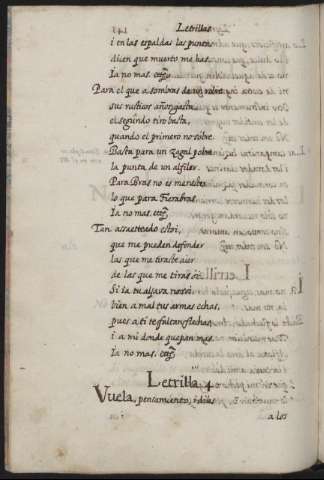 Letrillas
i en las espaldas las puntas
dicen que muerto me has.
Ia no mas. etcª,
Para el que a sombras de un robre
sus rusticos años gasta
el segundo tiro basta,
quando el primero no sobre.
Basta para un Zagal pobre
la punta de un alfiler
Para Bras no es menester
lo que para Fierabras
Ia no mas. etcª,
Tan assaeteado estoi,
que me pueden defender
las que me tiraste aier
de las que me tiras oi.
Si ia tu aljava no soi
bien a mal tus armas echas,
pues a ti te faltan flechas,
i a mi donde quepan mas.
Ia no mas. etcª,
Letrilla 4
Vuela, pensamiento, i diles
a los